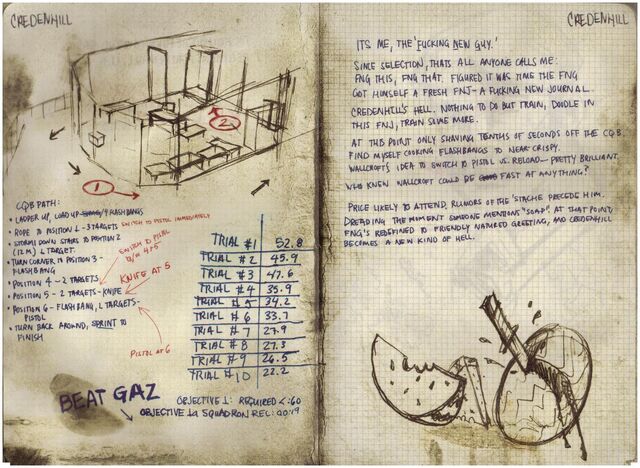 CREDENHILL
2
1
CQB PATH:
• LADDER UP, LOAD UP 4 FLASHBANGS
• ROPE TO POSITION 1 - 3 TARGETS SWITCH TO PISTOL IMMEDIATELY
• STORMS DOWN STAIRS TO POSITION 2
(12 M) 1 TARGET.
SWITCH TO PISTOL
B/W 4 & 5
• TURN CORNER TO POSITION 3 -
FLASHBANG
• POSITION 4 - 2 TARGETS
KNIFE AT 5
• POSITION 5 - 2 TARGETS - KNIFE
• POSITION 6 - FLASHBANG, 2 TARGETS -
PISTOL
• TURN BACK AROUND, SPRINT TO
FINISH
PISTOL AT 6
TRIAL #1 52.8
TRIAL #2 45.9
TRIAL #3 47.6
TRIAL #4 35.9
TRIAL #5 34.2
TRIAL #6 33.7
TRIAL #7 27.9
TRIAL #8 27.3
TRIAL #9 26.5
TRIAL #10 22.2
BEAT GAZ
OBJECTIVE 1: REQUIRED <:60
OBJECTIVE 1a SQUADRON REC: 00:19
CREDENHILL
ITS ME, THE 'FUCKING NEW GUY.'
SINCE SELECTION, THATS ALL ANYONE CALLS ME:
FNG THIS, FNG THAT. FIGURED IT WAS TIME THE FNG
GOT HIMSELF A FRESH FNJ - A FUCKING NEW JOURNAL.
CREDENHILL'S HELL. NOTHING TO DO BUT TRAIN, DOODLE IN
THIS FNJ, TRAIN SOME MORE.
AT THIS POINT ONLY SHAVING TENTHS OF SECONDS OFF THE CQB.
FIND MYSELF COOKING FLASHBANGS TO NEAR-CRISPY.
WALLCROFT'S IDEA TO SWITCH TO PISTOL VS. RELOAD - PRETTY BRILLIANT.
WHO KNEW WALLCROFT COULD BE FAST AT ANYTHING?
PRICE LIKELY TO ATTEND, RUMORS OF THE 'STACHE PRECEDE HIM.
DREADING THE MOMENT SOMEONE MENTIONS "SOAP". AT THAT POINT,
FNG'S REDEFINED TO FRIENDLY NATURED GREETING, AND CREDENHILL
BECOMES A NEW KIND OF HELL.